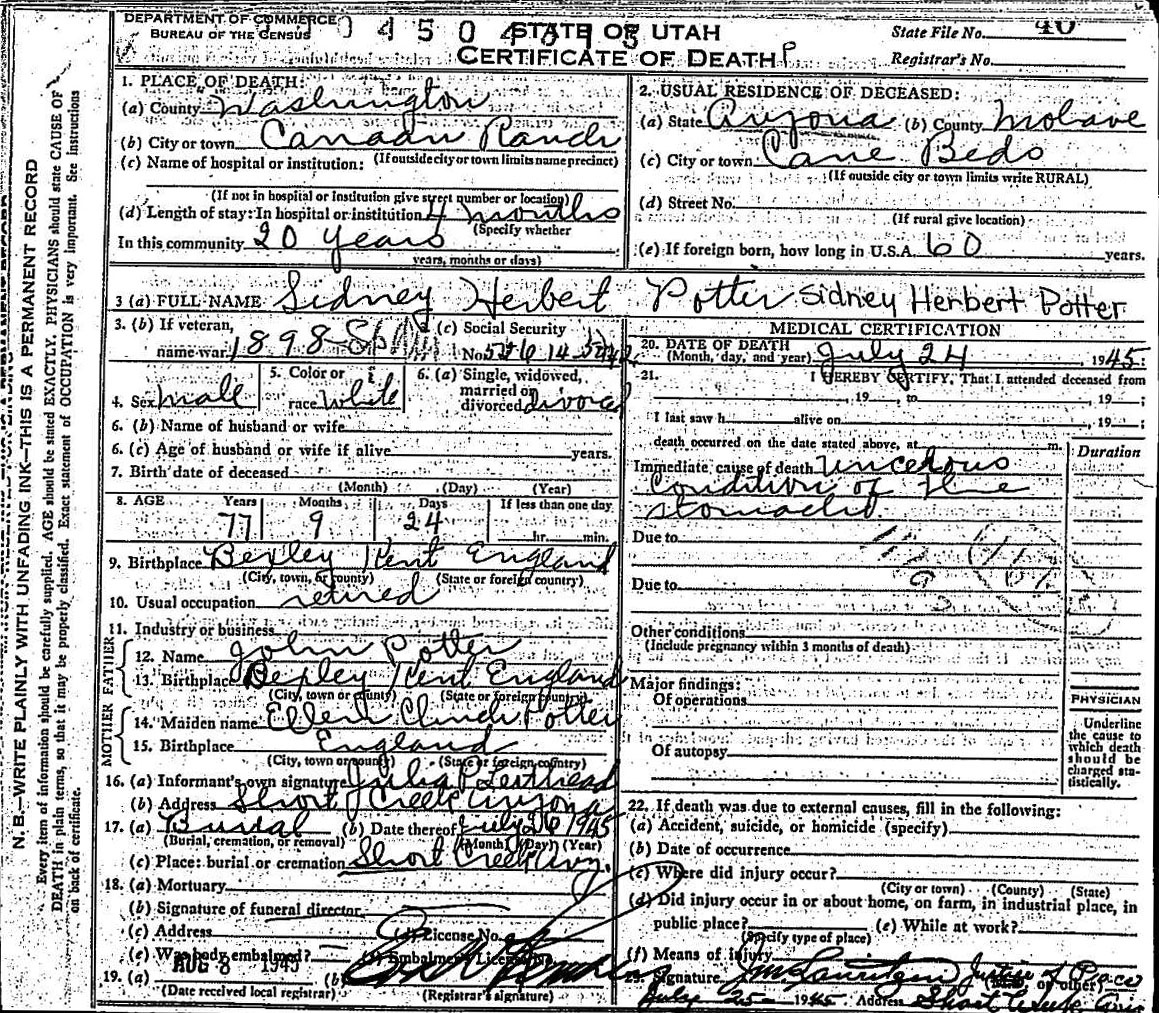 DEPARTMENT OF COMMERCE
BUREAU OF THE CENSUS
STATE OF UTAH
CERTIFICATE OF DEATH
State File No. 40
Registrar's No.
N. B.—WRITE PLAINLY WITH UNFADING INK—THIS IS A PERMANENT RECORD
Every item of information should be carefully supplied. AGE should be stated EXACTLY. PHYSICIANS should state CAUSE OF
DEATH in plain terms, so that it may be properly classified. Exact statement of OCCUPATION is very important. See instructions
on back of certificate.
1. PLACE OF DEATH:
(a) County Washington
(b) City or town Canaan Ranch
(If outside city or town limits name precinct)
(c) Name of hospital or institution:
(If not in hospital or institution give street number or location)
(d) Length of stay: In hospital or institution 4 months
(Specify whether
In this community 20 years
years, months or days)
2. USUAL RESIDENCE OF DECEASED:
(a) State Arizona (b) County Mohave
(c) City or town Cane Beds
(If outside city or town limits write RURAL)
(d) Street No.
(If rural give location)
(e) If foreign born, how long in U.S.A. 60 years.
3 (a) FULL NAME Sidney Herbert Potter Sidney Herbert Potter
3. (b) If veteran, name war 1898
(c) Social Security No.
4. Sex mall
5. Color or race White
6. (a) Single, widowed, married or divorced divorced
6. (b) Name of husband or wife
6. (c) Age of husband or wife if alive years.
7. Birth date of deceased
(Month) (Day) (Year)
8. AGE Years Months Days If less than one day
77 9 24 hr. min.
9. Birthplace Bexley Kent England
(City, town, or county) (State or foreign country)
10. Usual occupation retired
11. Industry or business
FATHER
12. Name John Potter
13. Birthplace Bexley Kent England
(City, town or county) (State or foreign country)
MOTHER
14. Maiden name Ellen Potter
15. Birthplace England
(City, town or county) (State or foreign country)
16. (a) Informant's own signature Julia
(b) Address Short Creek Arizona
17. (a) Burial (b) Date thereof July 26 1945
(Burial, cremation, or removal) (Month) (Day) (Year)
(c) Place: burial or cremation Short Creek Ariz.
18. (a) Mortuary
(b) Signature of funeral director
(c) Address (d) License No.
(e) Was body embalmed? (f) Embalmer's License No.
19. (a) AUG 8 1945 (b)
(Date received local registrar) (Registrar's signature)
MEDICAL CERTIFICATION
20. DATE OF DEATH
(Month, day, and year) July 24 1945
21. I HEREBY CERTIFY, That I attended deceased from
, 19 , to , 19 ;
I last saw h alive on , 19 ;
death occurred on the date stated above, at m.
Duration
Immediate cause of death
condition of the
stomach
Due to
Due to
Other conditions
(Include pregnancy within 3 months of death)
Major findings:
Of operations
Of autopsy
PHYSICIAN
Underline
the cause to
which death
should be
charged sta-
tistically.
22. If death was due to external causes, fill in the following:
(a) Accident, suicide, or homicide (specify)
(b) Date of occurrence
(c) Where did injury occur?
(City or town) (County) (State)
(d) Did injury occur in or about home, on farm, in industrial place, in
public place? (e) While at work?
(Specify type of place)
(f) Means of injury
23. Signature J M Lauritzen Justice of Peace
(M.D. or other)
July 25 1945 Address Short Creek Ariz